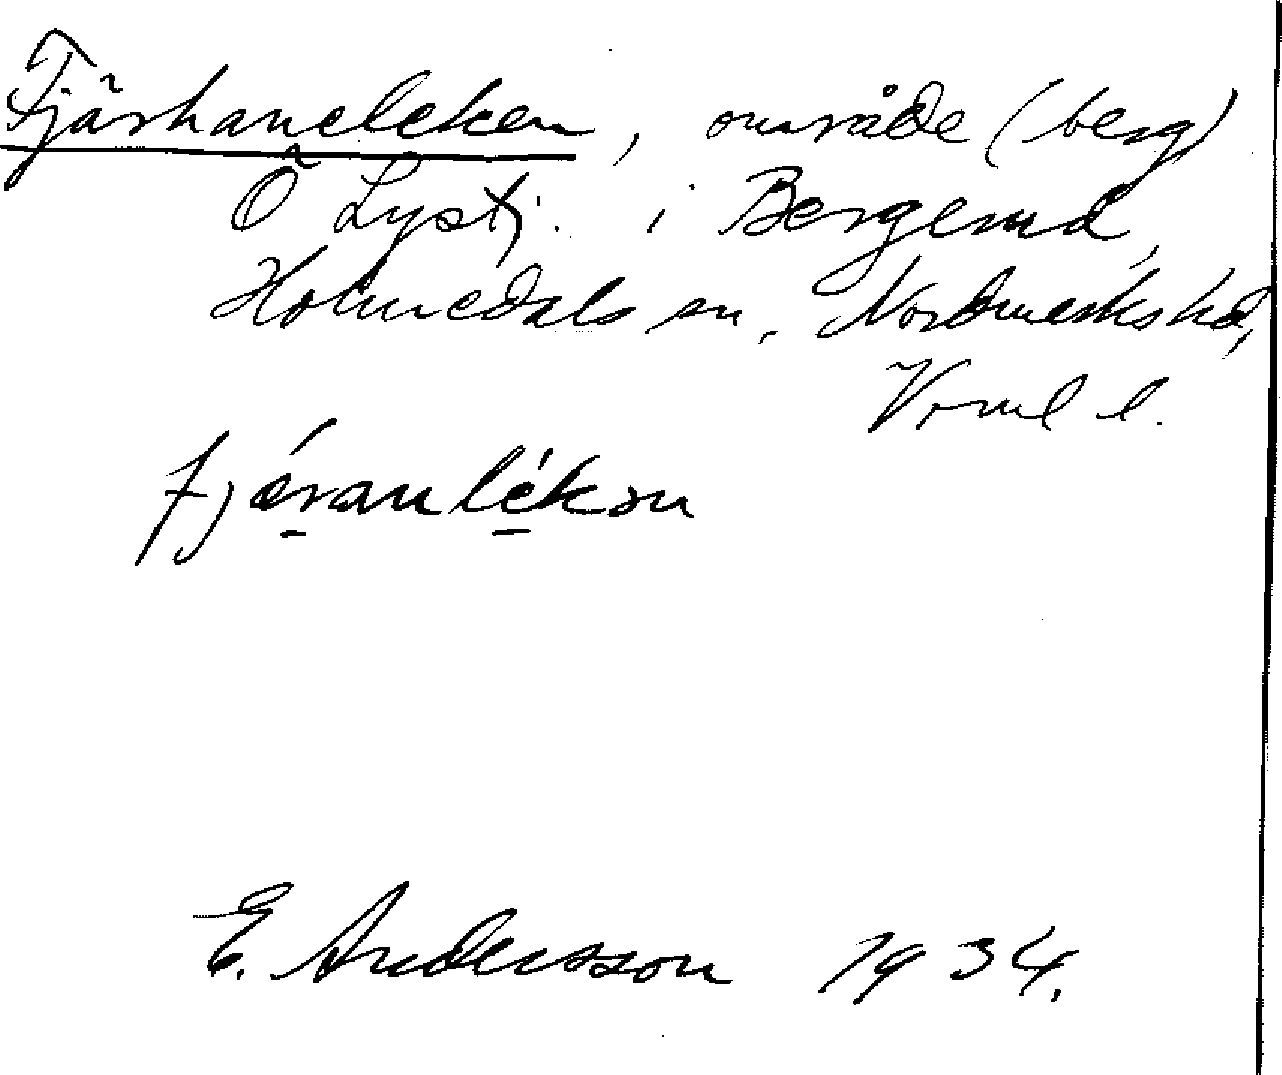 Fjärhaneleken, område (berg)
Ö Lystj. i Bergerud,
Holmedals sn, Nordmarks hd,
Vrml l.
fjǽranlékən
E. Andersson 1934.